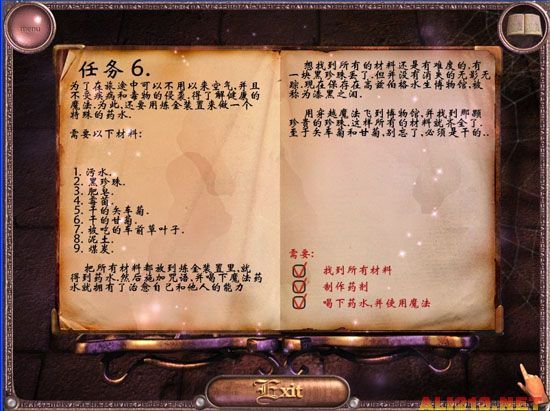 menu
任务 6.
为了在旅途中可以不用以来空气,并且
不受疾病和毒物的侵害,得了解健康的
魔法.为此,还要用炼金装置来做一个
特殊的药水.
需要以下材料:
1. 污水.
2. 黑珍珠.
3. 肥皂.
4. 毒菌.
5. 干的矢车菊.
6. 干的甘菊.
7. 被吃的车前草叶子.
8. 泥土.
9. 煤炭.
把所有材料都放到炼金装置里,就
得到药水.然后施加咒语,并喝下魔法药
水就拥有了治愈自己和他人的能力
想找到所有的材料还是有难度的.有
一块黑珍珠丢了.但并没有消失的无影无
踪.现在保存在高兹柏格水生博物馆,被
称为漆黑之泪.
用穿越魔法飞到博物馆,并找到那颗
珍贵的珍珠.这样所有的材料就齐全了.
至于矢车菊和甘菊,别忘了,必须是干的..
需要:
找到所有材料
制作药剂
喝下药水,并使用魔法
Exit
ALI213.NET